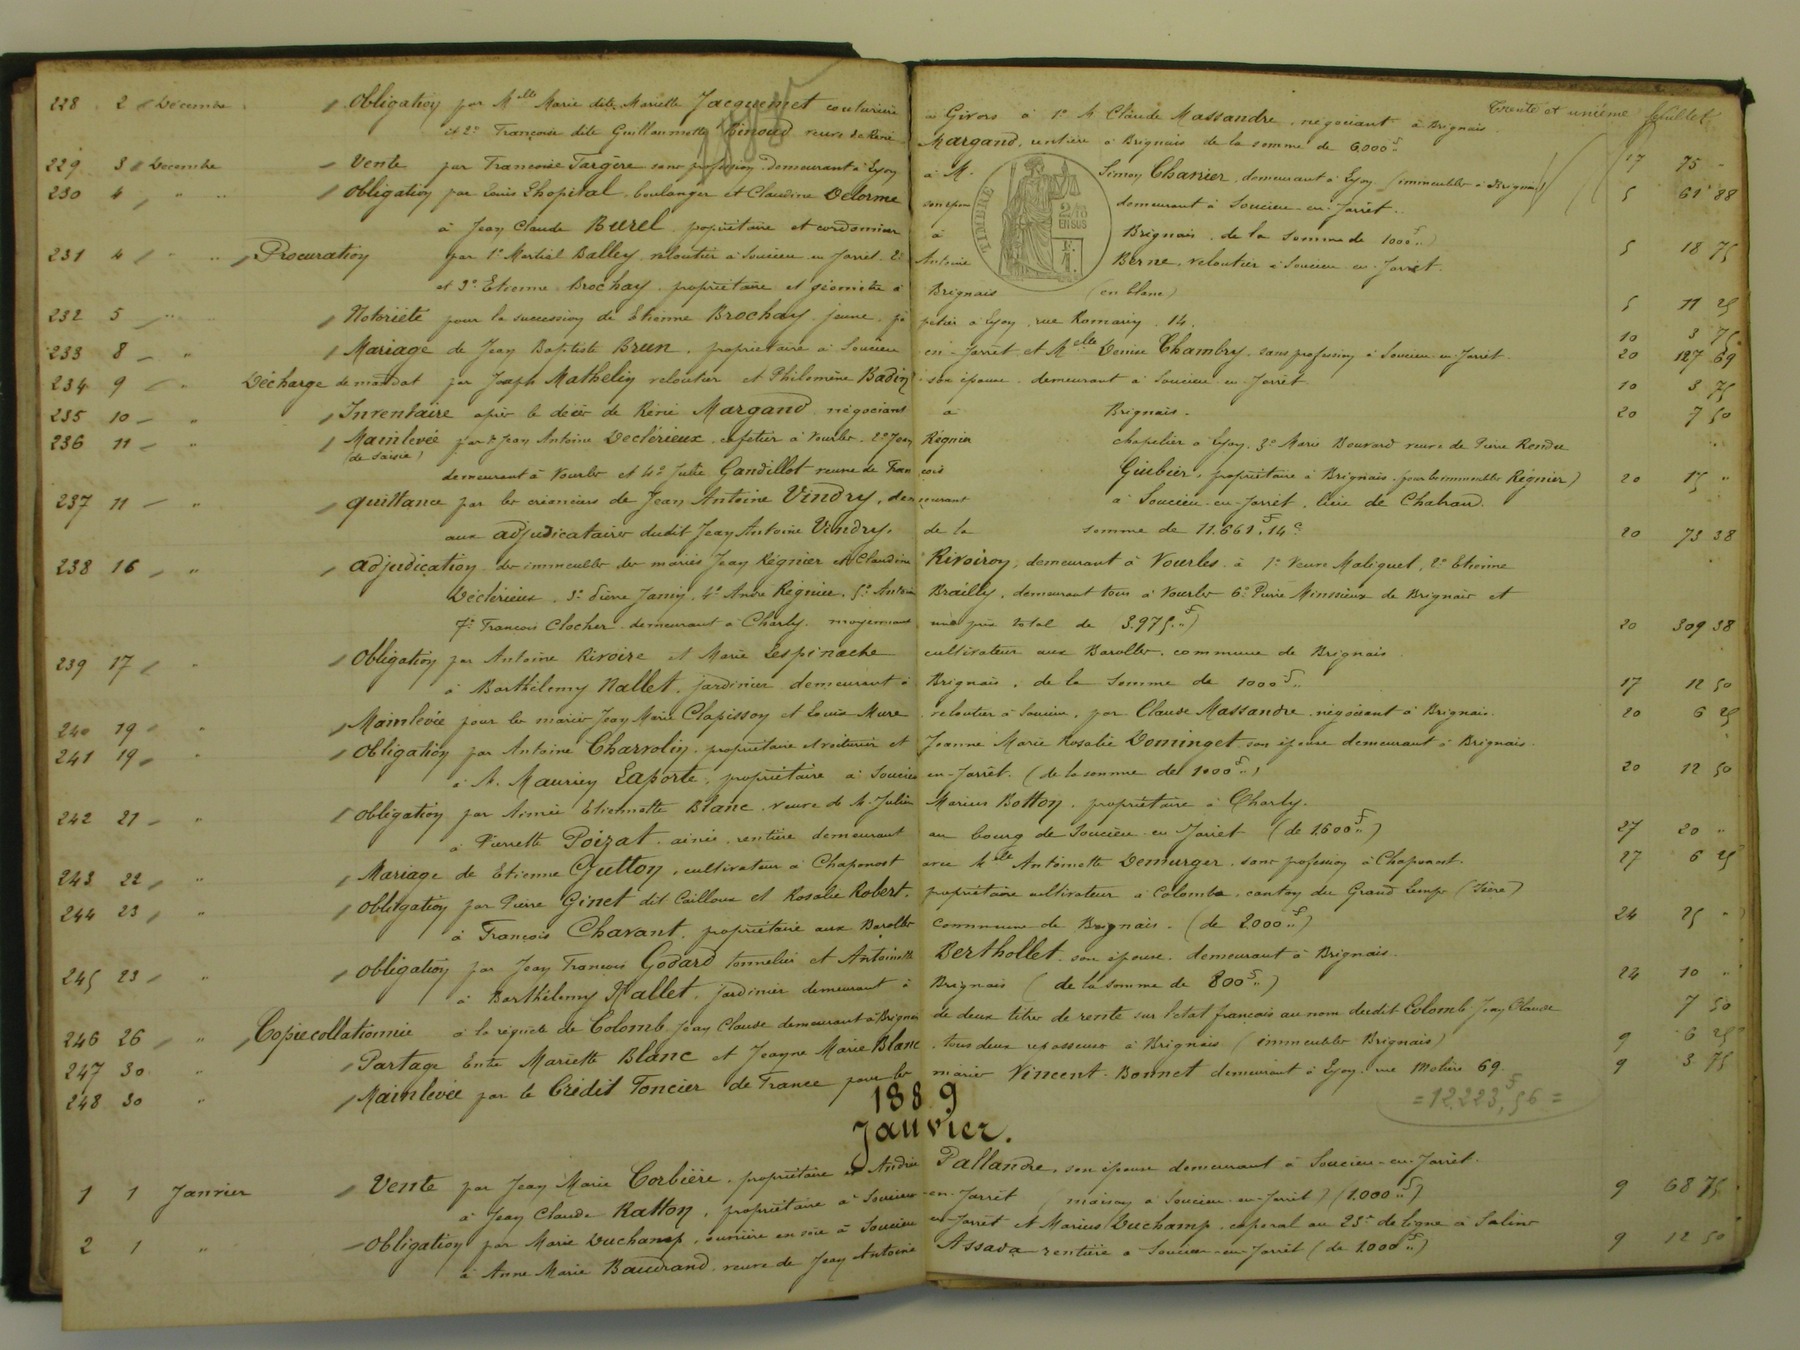 Trente et unième feuillet
228 2 Décembre Obligation par Melle Marie dite Mariette Jacquemet couturière à Givors à 1º M Claude Massandre, négociant à Brignais
et 2º Françoise dite Guillaumette Binoud veuve de René Margand, rentière à Brignais de la somme de 6000f.. 17 75 -
229 3 Décembre Vente par Françoise Targère sans profession demeurant à Lyon à M. Simon Charrier, demeurant à Lyon (immeubles à Brignais) 5 61 88
230 4 " " Obligation par Louis Lhopital, boulanger et Claudine Delorme son épouse demeurant à Soucieu-en-Jarrêt..
à Jean Claude Burel, propriétaire et cordonnier à Brignais, de la somme de 1000f..) 5 18 75
231 4 " " Procuration par 1º Martial Balley, veloutier à Soucieu en Jarrêt 2º Antoine Berne, veloutier à Soucieu-en-Jarrêt.
et 3º Etienne Brochay, propriétaire et géomètre à Brignais (en blanc) 5 11 25
TIMBRE 2/10 EN SUS
232 5 " " Notoriété pour la succession de Etienne Brochay, jeune, à Lyon, rue Romarin, 14. 10 3 75
233 8 " Mariage de Jean Baptiste Brun, propriétaire à Soucieu en-Jarrêt et Melle Denise Chambry, sans profession à Soucieu-en-Jarrêt. 20 127 69
234 9 " Décharge de mandat par Joseph Mathelin veloutier et Philomène Badin son épouse, demeurant à Soucieu-en-Jarrêt 10 3 75
235 10 " Inventaire après le décès de Réné Margand négociant à Brignais. 20 7 50
236 11 " Mainlevée par 1º Jean Antoine Declérieux, cafetier à Vourles, 2º Jean Régnier chapelier à Lyon, 3º Marie Bouvard veuve de Pierre Rendu
(de saisie) demeurant à Vourles et 4º Julie Gandillot veuve de François Guibier, propriétaire à Brignais (pour les immeubles Régnier) 20 15 "
237 11 " quittance par les créanciers de Jean Antoine Vindry, demeurant à Soucieu-en-Jarrêt, lieu de Chatrand.
aux adjudicataires dudit Jean Antoine Vindry. de la somme de 11.661f,14c 20 73 38
238 16 " adjudication des immeubles des mariés Jean Régnier et Claudine Rivoiron, demeurant à Vourles à 1º Veuve Maliguet, 2º Etienne
Déclérieux, 3º Pierre Janin, 4º André Régnier, 5º Antoine Brailly, demeurant tous à Vourles 6º Pierre Minssieux de Brignais et
7º François Clocher demeurant à Charly, moyennant un prix total de (3.975f..) 20 309 38
239 17 " Obligation par Antoine Rivoire et Marie Lespinache cultivateur aux Barolles, commune de Brignais
à Barthélemy Nallet, jardinier demeurant à Brignais, de la somme de 1000f.. 17 12 50
240 19 " Mainlevée pour les mariés Jean Marie Clapisson et Louise Mure veloutier à Soucieu, par Claude Massandre, négociant à Brignais. 20 6 25
241 19 " Obligation par Antoine Charvolin, propriétaire et voiturier et Jeanne Marie Rosalie Dominget son épouse demeurant à Brignais.
à M. Maurien Laporte, propriétaire à Soucieu en-Jarrêt. (de la somme de 1000f..) 20 12 50
242 21 " Obligation par Aimée Etiennette Blanc, veuve de M. Julien Marius Botton, propriétaire à Charly.
à Pierrette Poizat, ainée, rentière demeurant au bourg de Soucieu-en-Jarrêt (de 1.600f..) 27 20 "
243 22 " Mariage de Etienne Gutton, cultivateur à Chaponost avec Melle Antoinette Demurger, sans profession à Chaponost. 27 6 25
244 23 " Obligation par Pierre Ginet dit Cailloux et Rosalie Robert, propriétaire cultivateur à Colombe, canton du Grand Lemps (Isère)
à François Chavant, propriétaire aux Barolles commune de Brignais. (de 2.000f..) 24 25 "
245 23 " Obligation par Jean François Godard tonnelier et Antoinette Berthollet son épouse, demeurant à Brignais.
à Barthélemy Nallet, jardinier demeurant à Brignais (de la somme de 800f..) 24 10 "
246 26 " Copie collationnée à la requête de Colomb Jean Claude demeurant à Brignais de deux titres de rente sur l'état français au nom dudit Colomb Jean Claude 7 50
247 30 " Partage Entre Mariette Blanc et Jeanne Marie Blanc, tous deux repasseuses à Brignais (immeubles Brignais) 9 6 25
248 30 " Mainlevée par le Crédit Foncier de France pour les mariés Vincent-Bonnet demeurant à Lyon, rue Molière 69. 9 3 75
= 12.223f,56 =
1889
Janvier.
1 1 Janvier Vente par Jean Marie Corbière, propriétaire et Pallandre, son épouse demeurant à Soucieu-en-Jarrêt.
à Jean Claude Ratton, propriétaire à Soucieu-en-Jarrêt (maison à Soucieu-en-Jarrêt) (1.000f..) 9 68 75
2 1 " Obligation par Marie Duchamp, ouvrière en soie à Soucieu en-Jarrêt et Marius Duchamp, caporal au 23e de ligne à Salins
à Anne Marie Baudrand, veuve de Jean Antoine Assada rentière à Soucieu-en-Jarrêt (de 1.000f..) 9 12 50